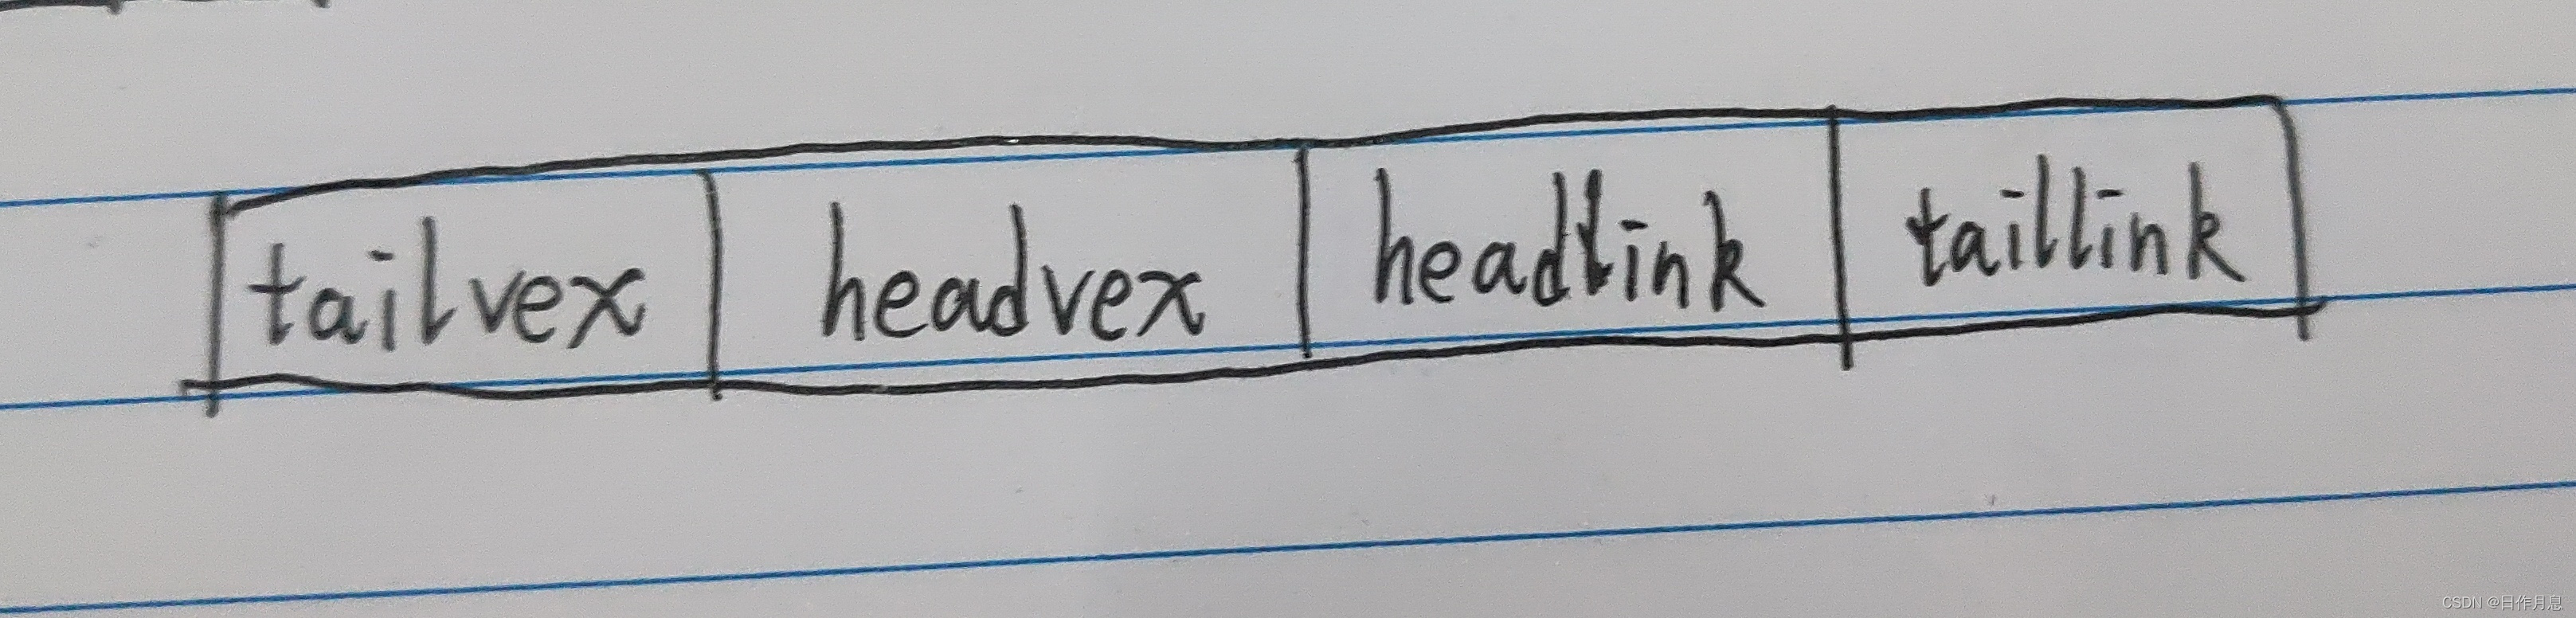 tailvex headvex headlink taillink
CSDN @日作月息